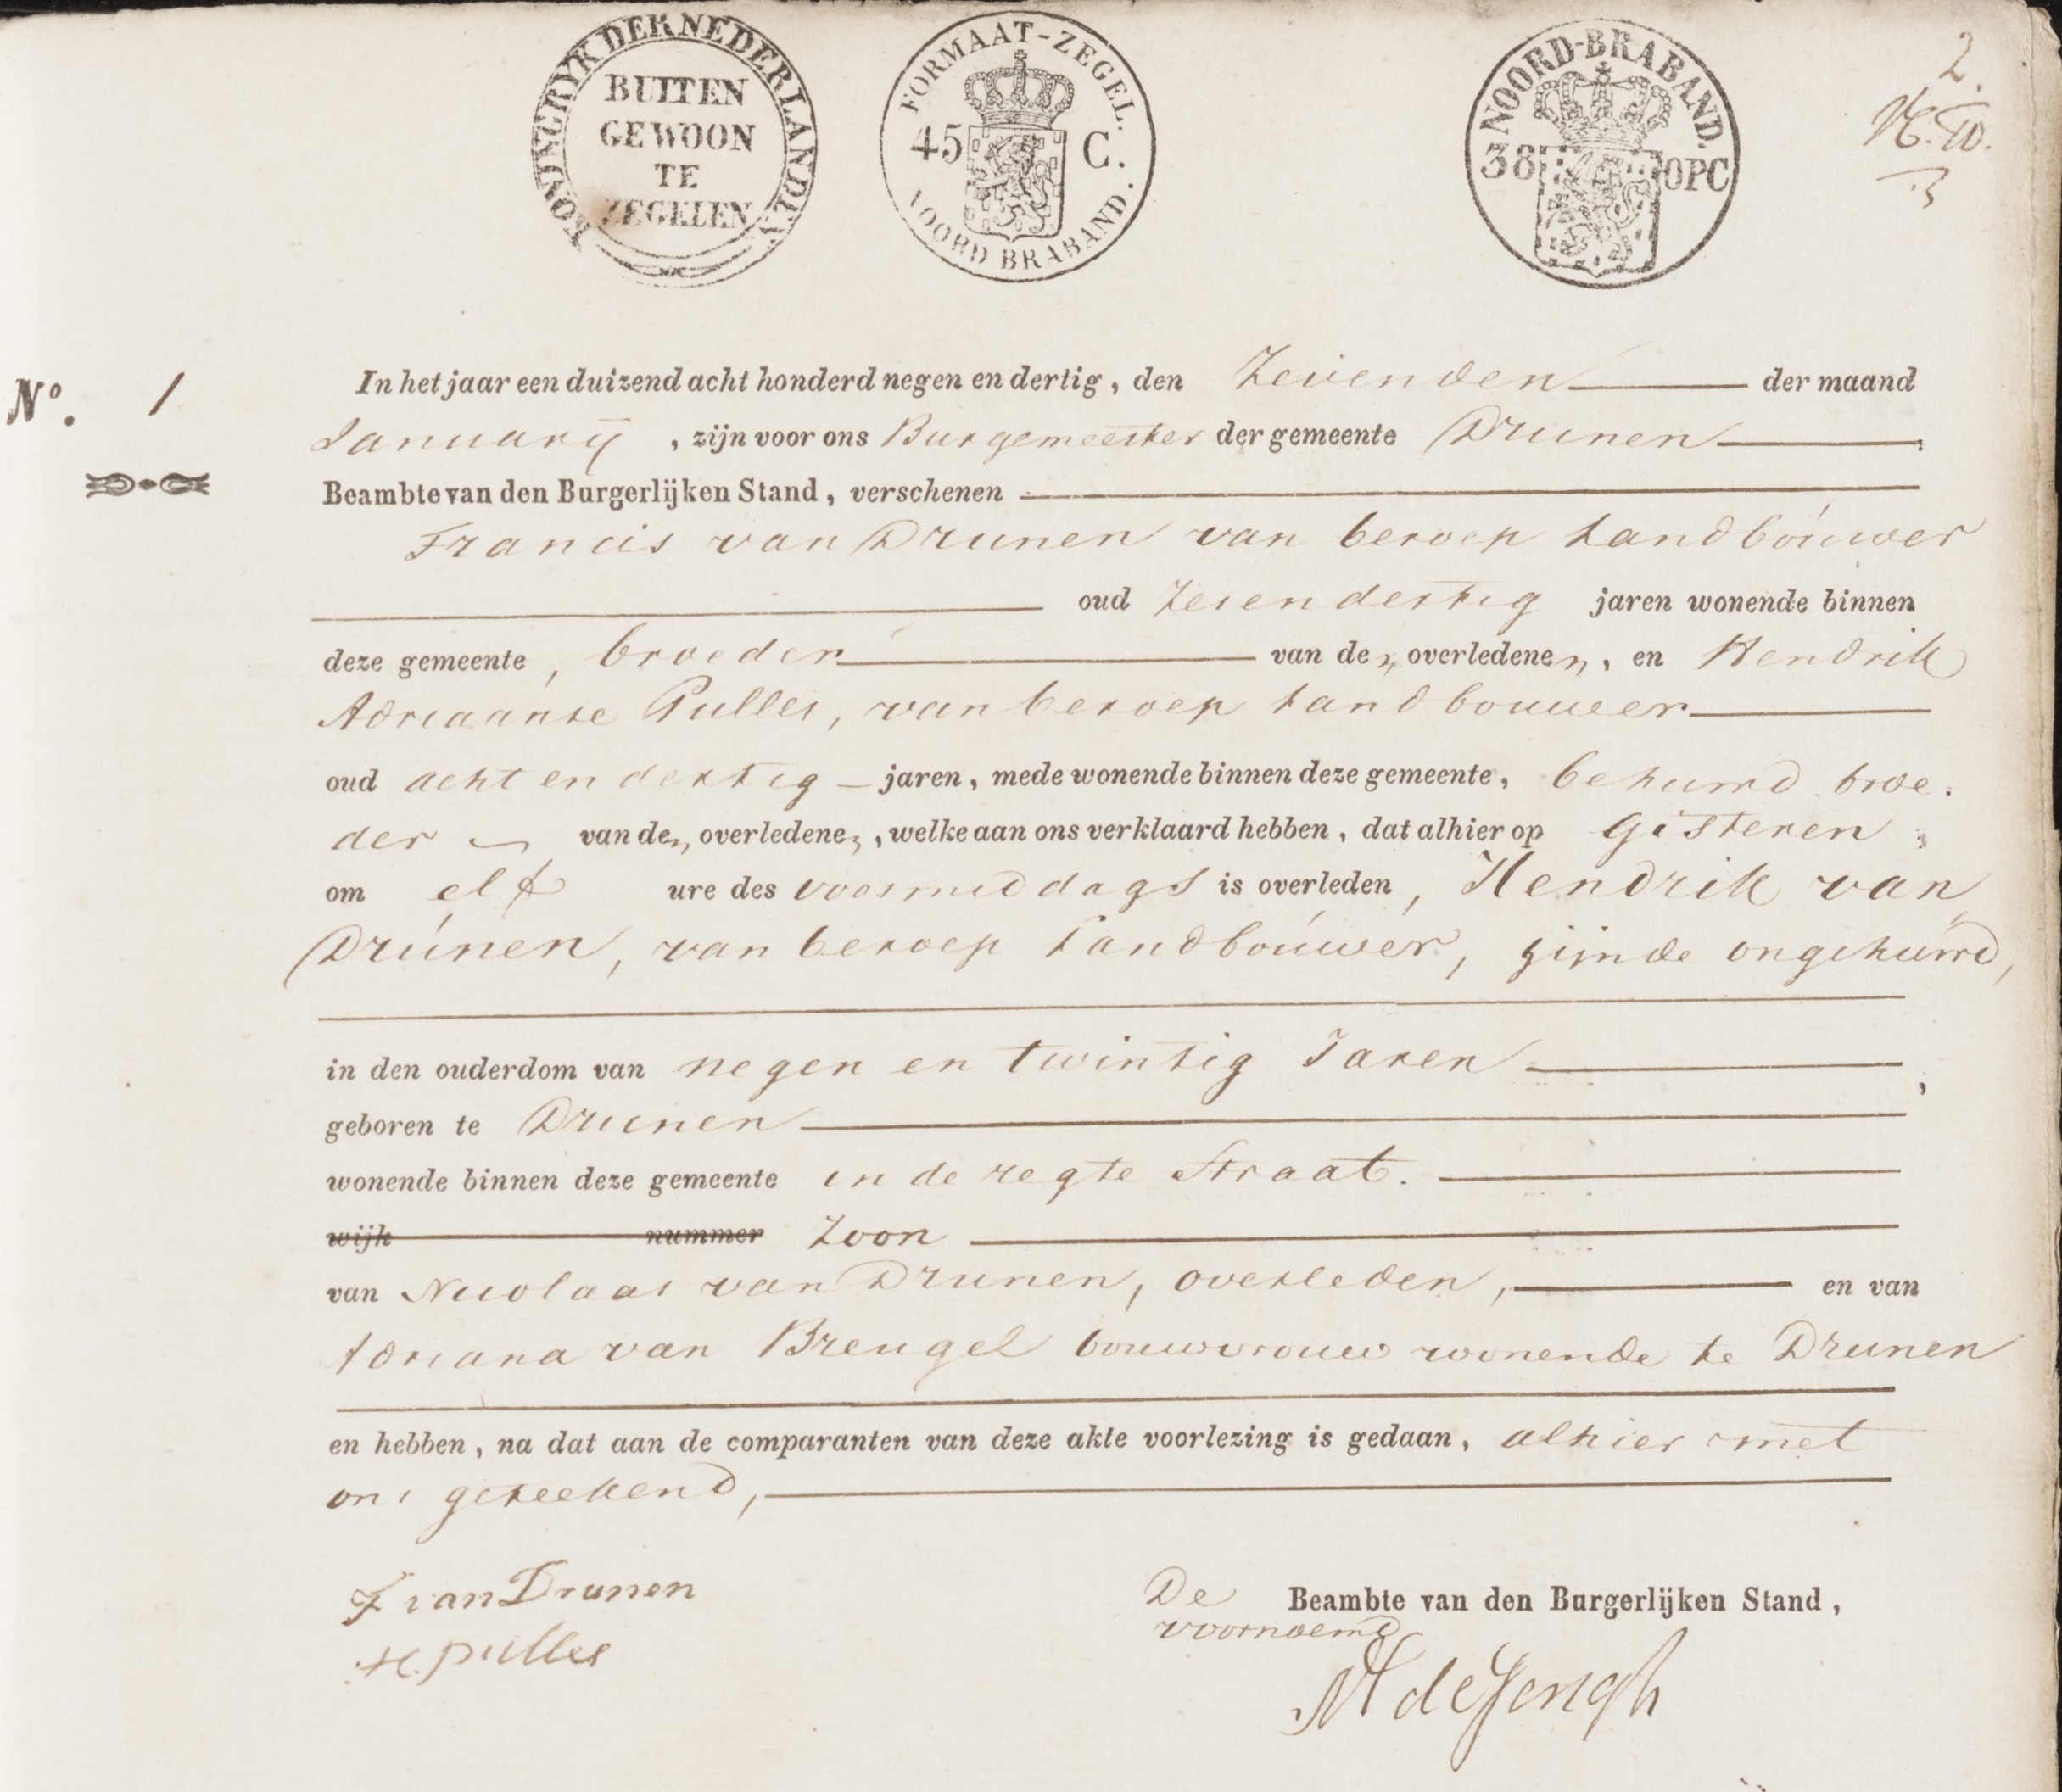 KONINGRYK DER NEDERLANDEN
BUITEN
GEWOON
TE
ZEGELEN
FORMAAT-ZEGEL.
45 C.
NOORD BRABAND.
NOORD-BRABAND.
38 OPC
2.
No. 1
In het jaar een duizend acht honderd negen en dertig, den Zevenden der maand
Januarij, zijn voor ons Burgemeester der gemeente Drunen,
Beambte van den Burgerlijken Stand, verschenen
Francis van Drunen van beroep Landbouwer
oud Zesendertig jaren wonende binnen
deze gemeente, broeder van den overledenen, en Hendrik
Adriaanse Pulles, van beroep Landbouwer
oud achtendertig jaren, mede wonende binnen deze gemeente, behuwd broe-
der van den overledenen, welke aan ons verklaard hebben, dat alhier op Gisteren,
om elf ure des voormiddags is overleden, Hendrik van
Drunen, van beroep Landbouwer, zijnde ongehuwd,
in den ouderdom van negen en twintig Jaren,
geboren te Drunen
wonende binnen deze gemeente in de regte Straat.
wijk nummer Zoon
van Nicolaas van Drunen, overleden, en van
Adriana van Breugel bouwvrouw wonende te Drunen
en hebben, na dat aan de comparanten van deze akte voorlezing is gedaan, alhier met
ons geteekend,
F van Drunen
H. pulles
De Beambte van den Burgerlijken Stand,
voornoemd
de Jongh